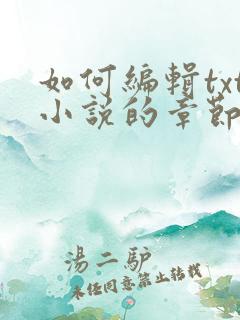 如何編輯txt
小説的章節
湯二驴
未经同意禁止转载